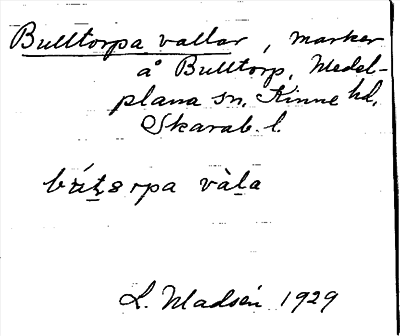 Bulltorpa vallar, marker
å Bulltorp, Medel-
plana sn, Kinne hd,
Skarab. l.
vàḷa
L. Madsén 1929